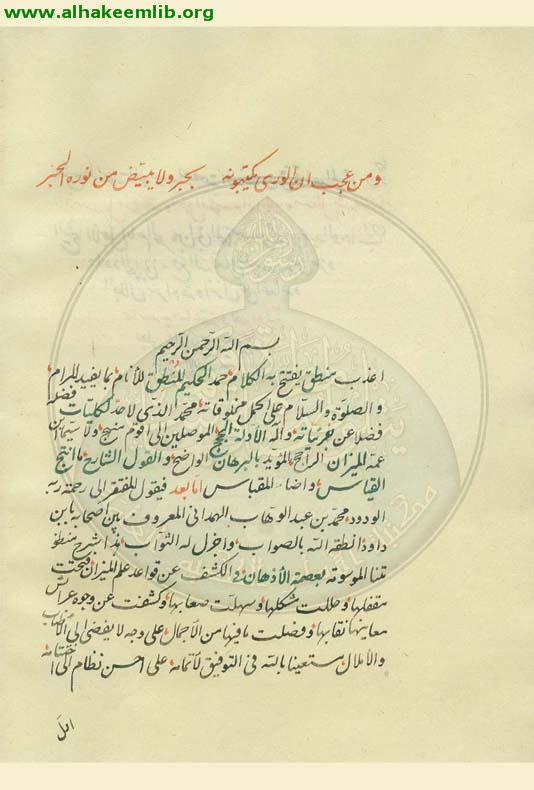 www.alhakeemlib.org
ومن عجب ان الورى يكتبونه بحبر ولا يبيّض من نوره الحبر
بسم الله الرّحمن الرّحيم
اعذب منطق يفتتح به الكلام حمد الحكيم المنطق للأنام بما يفيد المرام
والصلوة والسلام على اكمل مخلوقاته محمد الذي لاحدّ لكليّات فضله
فضلا عن جزئياته وآله الأدلة الحجج الموصلين الى اقوم منهج ولا سيّما ابن
عمه الميزان الراجح المؤيد بالبرهان الواضح والقول الشارح ما انتج
القياس واضاء المقباس اما بعد فيقول المفتقر الى رحمة ربه
الودود محمد بن عبد الوهاب الهمداني المعروف بين اصحابه بابن
داود انطقه الله بالصواب واجزل له الثواب هذا شرح منظو
متنا الموسومة بعصمة الأذهان في الكشف عن قواعد علم الميزان فتحت
مقفلها وحللت مشكلها وسهلت صعابها وكشفت عن وجوه عرائس
معانيها نقابها وفصلت ما فيها من الأجمال على وجه لا يفضي الى الأطناب
والأملال مستعينا بالله في التوفيق لأتمامه على احسن نظام الى اختتامه